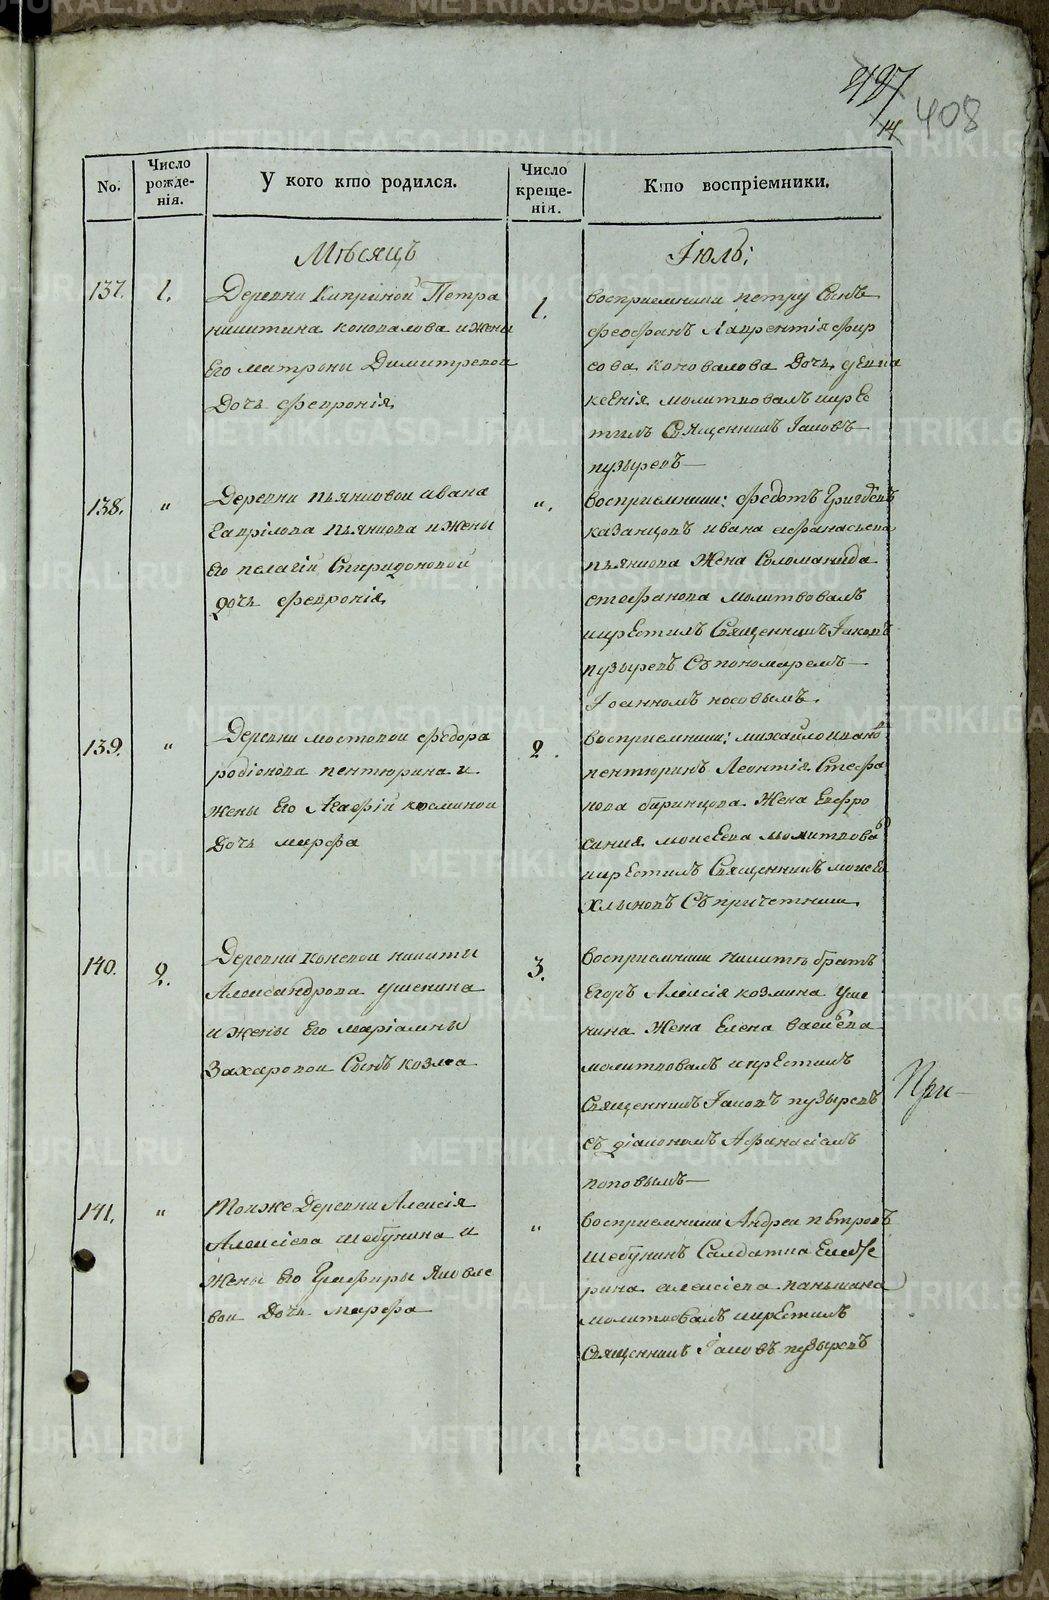 427
14
408
No.
Число рожде-
нія.
У кого кто родился.
Число креще-
нія.
Кто воспріемники.
Мѣсяцъ
Іюль:
137.
1.
Деревни Киприной Петра
никитина коновалова и жены
Его матроны Димитревои
Дочь февронія
1.
восприемники петру Сынъ
феофанъ Лаврентія фир
сова коновалова Дочь девка
ксенія молитвовалъ икре
тилъ Священникъ Іаковъ
пузыревъ
138.
"
Деревни пьянковои ивана
Гаврілова пьянкова и жены
Его пелагіи Спиридоновой
дочь февронія
".
восприемники: федотъ Григорьевъ
казанцовъ ивана афанасьева
пьянкова Жена Соломанида
стефанова молитвовалъ
икрестилъ Священникъ Іаковъ
пузыревъ Съ пономаремъ
Іоанномъ носовымъ.
139.
"
Деревни мостовои федора
родіонова пентюрина и
жены Его Агафіи косминои
Дочь марфа
2.
восприемники: михайло иванов
пентюринъ Леонтія Стефа
нова биринцова Жена Евфро
синия моисеева молитвова
икрестилъ Священникъ моисей
Хлыновъ Съ причетники
140.
2.
Деревни коневои никиты
Александрова ушенина
и жены Его маріамны
Захаровои Сынъ козма
3.
восприемники никитѣ братъ
Егоръ Алексія козмина уше
нина Жена Елена васильева
молитвовалъ икрестилъ
Священникъ Іаковъ пузыревъ
съ діакономъ Афанасіемъ
поповымъ
При-
141.
"
Тоиже Деревни Алексія
Алексіева шебунина и
жены Его Глафиры Яковле
вои Дочь марфа
"
восприемники Андреи петровъ
шебунинъ Салдатка Екате
рина алексіева панькина
молитвовалъ икрестилъ
Священникъ Іаковъ пузыревъ
METRIKI.GASO-URAL.RU